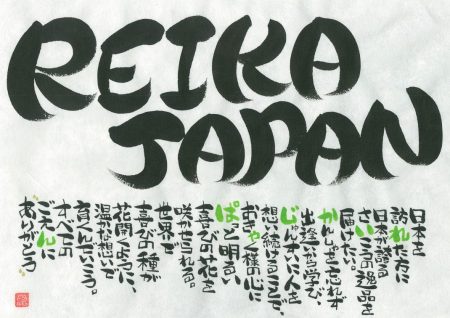 REIKA
JAPAN
日本を
訪れた方に
日本が誇る
さいこうの逸品を
届けたい。
かんしゃを忘れず
出逢から学び、
じゅんすいに人を
想い続けることで、
おきゃく様の心に
ぱっと明るい
喜びの花を
咲かせられる。
世界に
喜びの種が
花開くように、
温かな想いで
育くんでいこう。
すべての
ごえんに
ありがとう